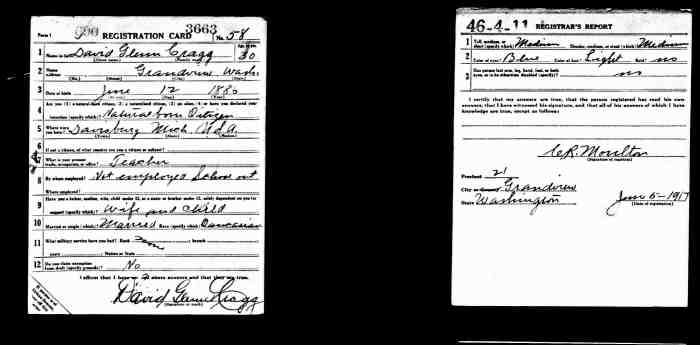 Form 1 REGISTRATION CARD 3663 No. 58
1 Name in full David Glenn Cragg Age, in yrs. 30
(Given name) (Family name)
2 Home address Grandview Wash.
(No.) (Street) (City) (State)
3 Date of birth June 12 1886
(Month) (Day) (Year)
4 Are you (1) a natural-born citizen, (2) a naturalized citizen, (3) an alien, (4) or have you declared your
intention (specify which)? Natural born Citizen
5 Where were you born? Davisburg Mich. U.S.A.
(Town) (State) (Nation)
6 If not a citizen, of what country are you a citizen or subject?
7 What is your present trade, occupation, or office? Teacher
8 By whom employed? Not employed School out
Where employed?
9 Have you a father, mother, wife, child under 12, or a sister or brother under 12, solely dependent on you for
support (specify which)? Wife and Child
10 Married or single (which)? Married Race (specify which)? Caucasian
11 What military service have you had? Rank None branch
years Nation or State
12 Do you claim exemption from draft (specify grounds)? No
I affirm that I have verified above answers and that they are true.
David Glenn Cragg
(Signature or mark)
46-4-11 REGISTRAR'S REPORT
1 Tall, medium, or short (specify which)? Medium Slender, medium, or stout (which)? Medium
2 Color of eyes? Blue Color of hair? Light Bald? no
3 Has person lost arm, leg, hand, foot, or both eyes, or is he otherwise disabled (specify)? no
I certify that my answers are true, that the person registered has read his own
answers, that I have witnessed his signature, and that all of his answers of which I have
knowledge are true, except as follows:
C.R. Moulton
(Signature of registrar)
Precinct 21
City or County Grandview
State Washington June 5-1917
(Date of registration)